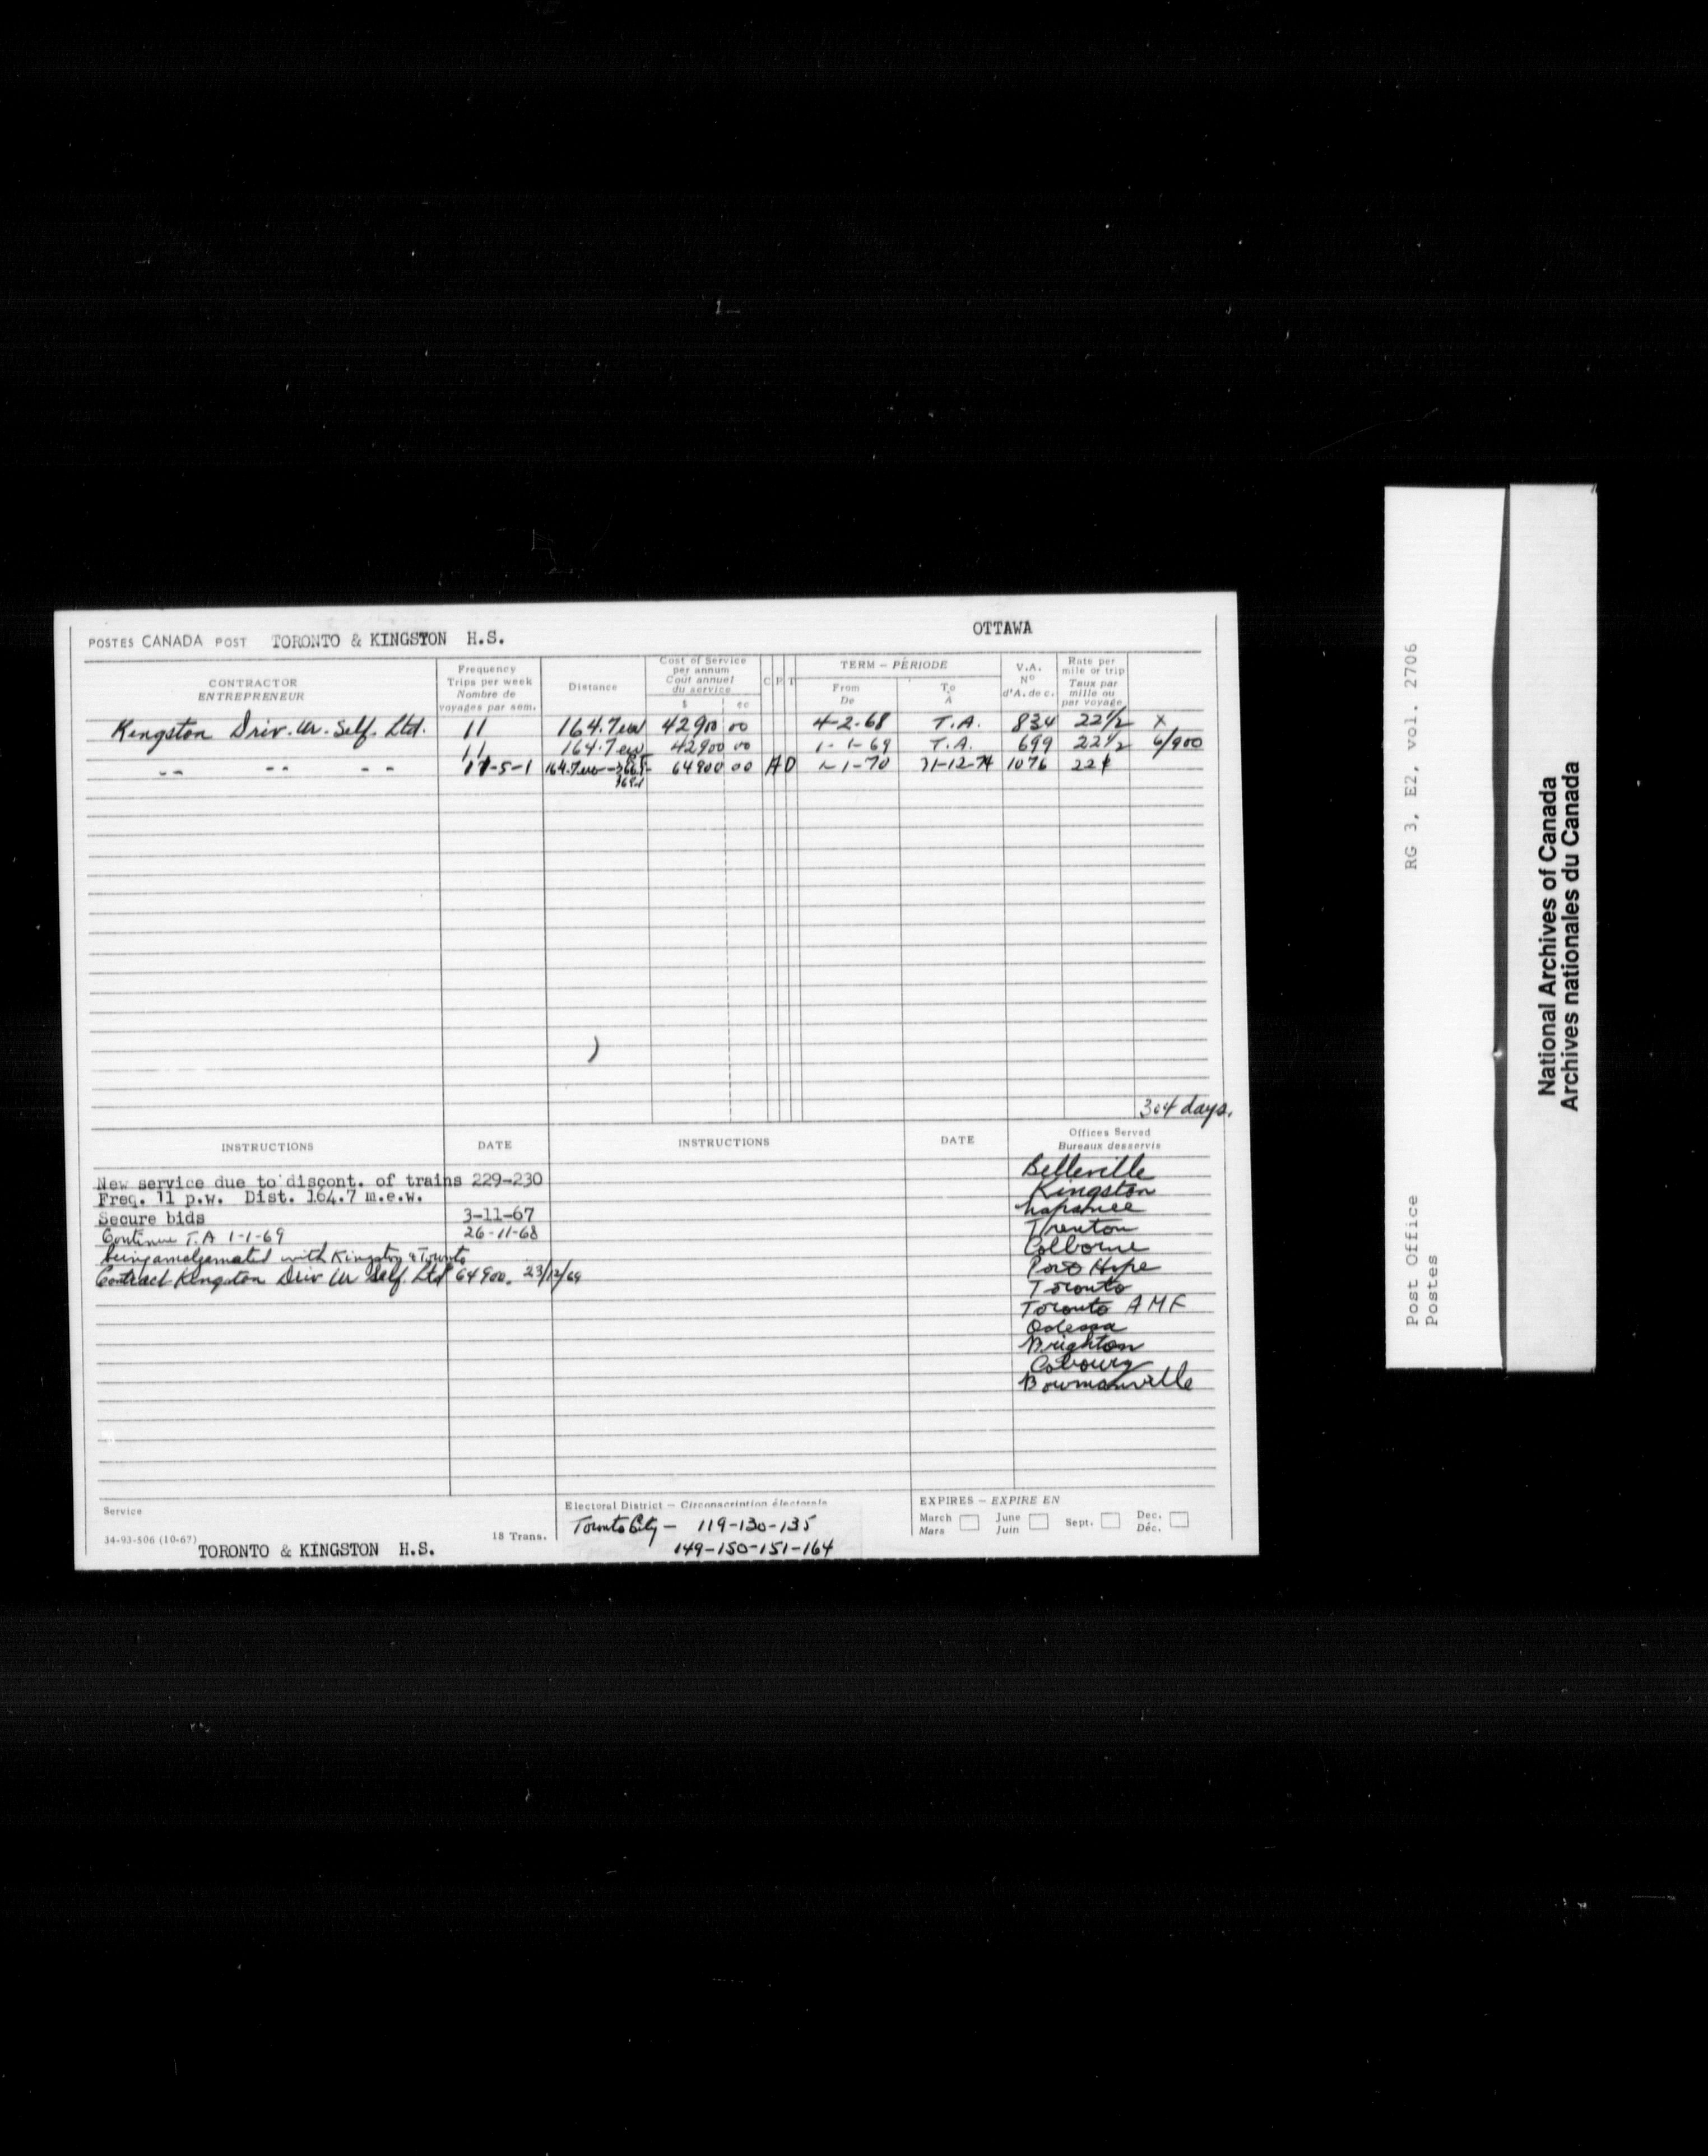 POSTES CANADA POST TORONTO & KINGSTON H.S. OTTAWA
CONTRACTOR
ENTREPRENEUR
Frequency
Trips per week
Nombre de
voyages par sem.
Distance
Cost of Service
per annum
Coût annuel
du service
$ cc
C P T
TERM – PÉRIODE
From
De
To
À
V.A.
Nº
d'A. de c.
Rate per
mile or trip
Taux par
mille ou
par voyage
Kingston Driv. Ur. Self. Ltd. 11 164.7 ew 42900 00 4-2-68 T.A. 834 22½ x
11 164.7 ew 42900 00 1-1-69 T.A. 699 22½ 6/900
-- -- -- 11-5-1 164.7 ew 64900 00 A D 1-1-70 31-12-74 1076 22¢
304 days.
INSTRUCTIONS DATE INSTRUCTIONS DATE
Offices Served
Bureaux desservis
New service due to discont. of trains 229-230
Freq. 11 p.w. Dist. 164.7 m.e.w.
Secure bids 3-11-67
Continue T.A 1-1-69 26-11-68
being amalgamated with Kingston & Toronto
Contract Kingston Driv Ur Self Ltd 64900. 23/12/69
Belleville
Kingston
Napanee
Trenton
Colborne
Port Hope
Toronto
Toronto AMF
Odessa
Brighton
Cobourg
Bowmanville
Service
34-93-506 (10-67)
TORONTO & KINGSTON H.S.
18 Trans.
Electoral District – Circonscription électorale
Toronto City – 119-130-135
149-150-151-164
EXPIRES – EXPIRE EN
March
Mars
June
Juin
Sept.
Dec.
Déc.
RG 3, E2, vol. 2706
Post Office
Postes
National Archives of Canada
Archives nationales du Canada